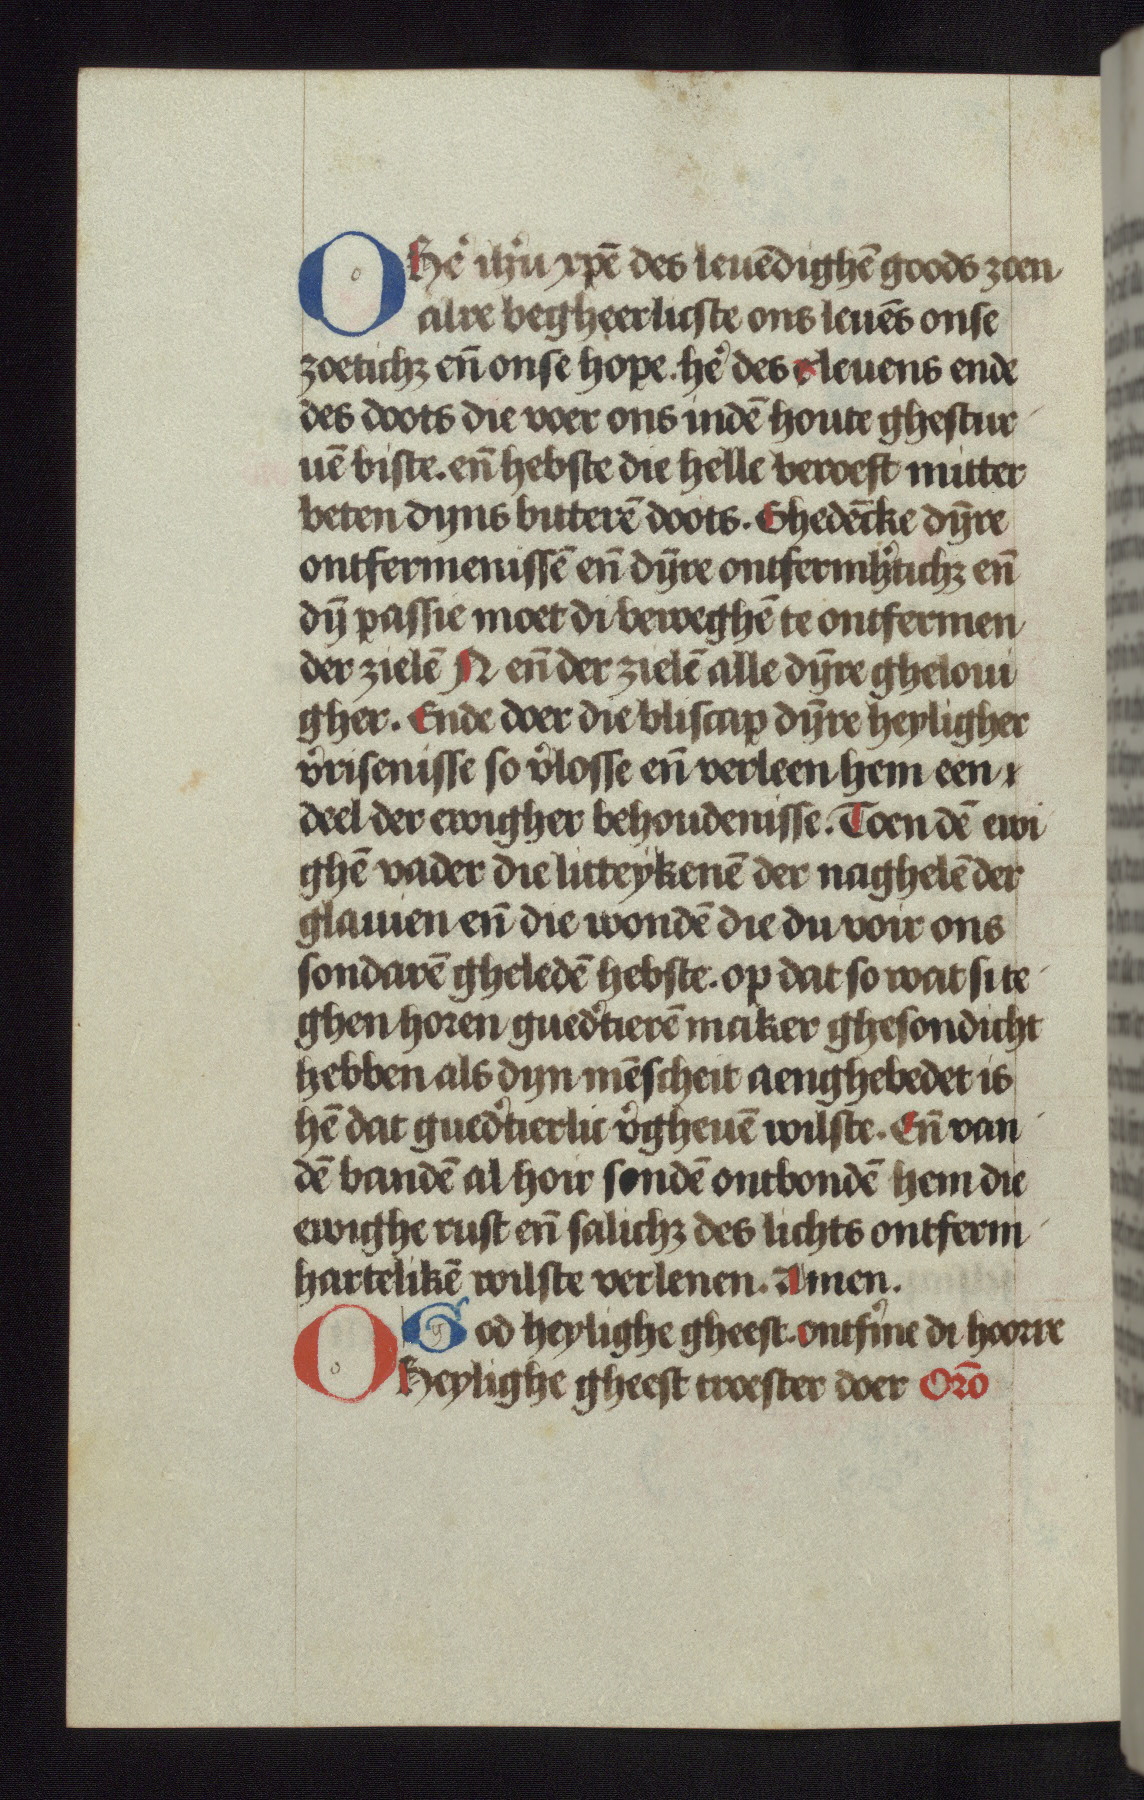 O Heͬ ihͬu xpē des leuēdighē goods zoen
alre begheerlicste ons leuēs onse
zoetichꝫ eñ onse hope. heͬ des leuens ende
des doots die voer ons indē houte ghestur
uē biste. eñ hebste die helle beroeft mitter
beten dyns butterē doots. Ghedēcke dȳre
ontfermenissē eñ dȳre ontfermhͬtichꝫ eñ
dȳ passie moet di beweghē te ontfermen
der zielē N eñ der zielē alle dȳre gheloui
gher. Ende doer die bliscap dȳre heyligher
vͬrisenisse so vͬlosse eñ verleen hem een
deel der ewigher behoudenisse. Toen dē ewi
ghē vader die litteykenē der naghelē der
glauien eñ die wondē die du voir ons
sondarē gheledē hebste. op dat so wat si te
ghen horen guedͬtierē maker ghesondicht
hebben als dyn mēscheit aenghebedet is
hē dat guedͬtierlic vͬgheuē wilste. Eñ van
dē bandē al hoir sondē ontbondē hem die
ewighe rust eñ salichꝫ des lichts ontferm
hartelikē wilste verlenen. Amen.
O God heylighe gheest. ontfͬme di hoorre
Heylighe gheest troester doer Orō